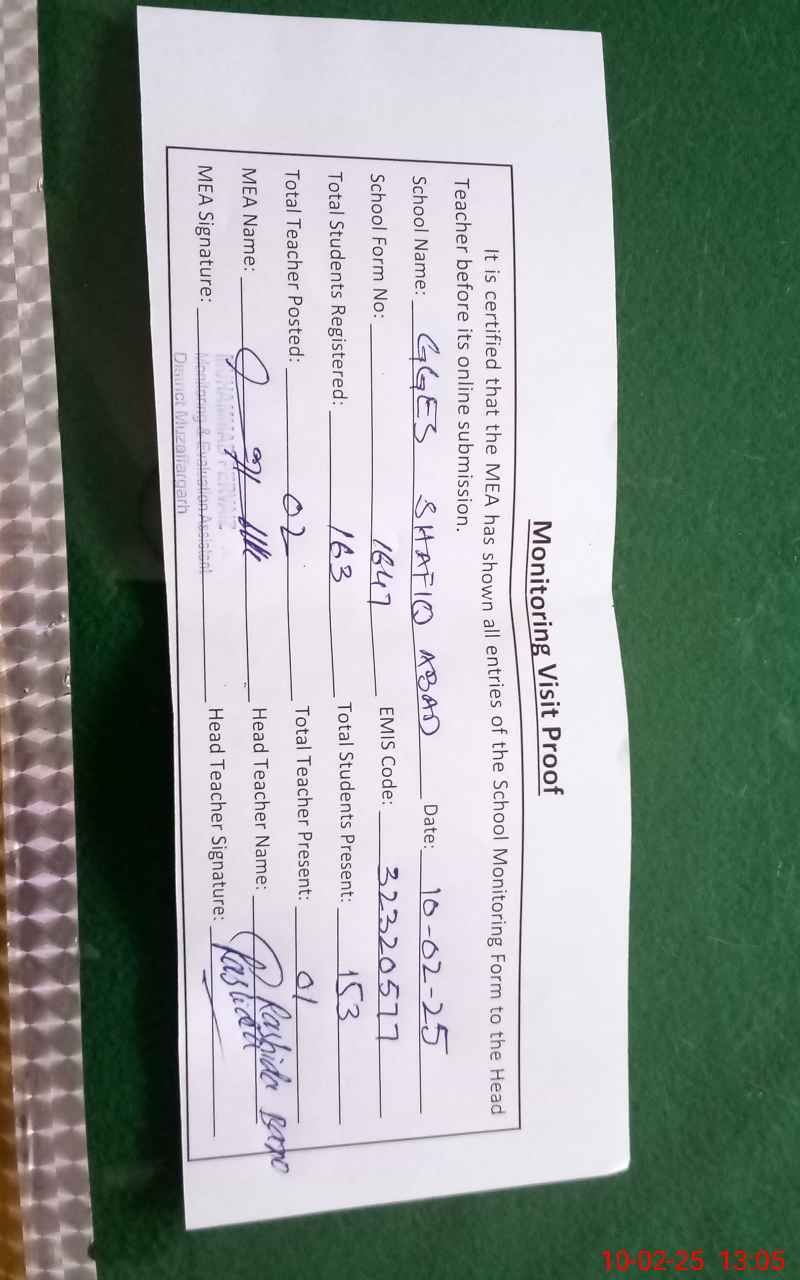 Monitoring Visit Proof
It is certified that the MEA has shown all entries of the School Monitoring Form to the Head
Teacher before its online submission.
School Name: GGES SHAFIQ ABAD Date: 10-02-25
School Form No: 1647 EMIS Code: 32320577
Total Students Registered: 163 Total Students Present: 153
Total Teacher Posted: 02 Total Teacher Present: 01
MEA Name: Head Teacher Name: Rashida Bano
MEA Signature: Head Teacher Signature: Rashida
MUHAMMAD PERVAIZ
Monitoring & Evaluation Assistant
District Muzaffargarh
10-02-25 13:05